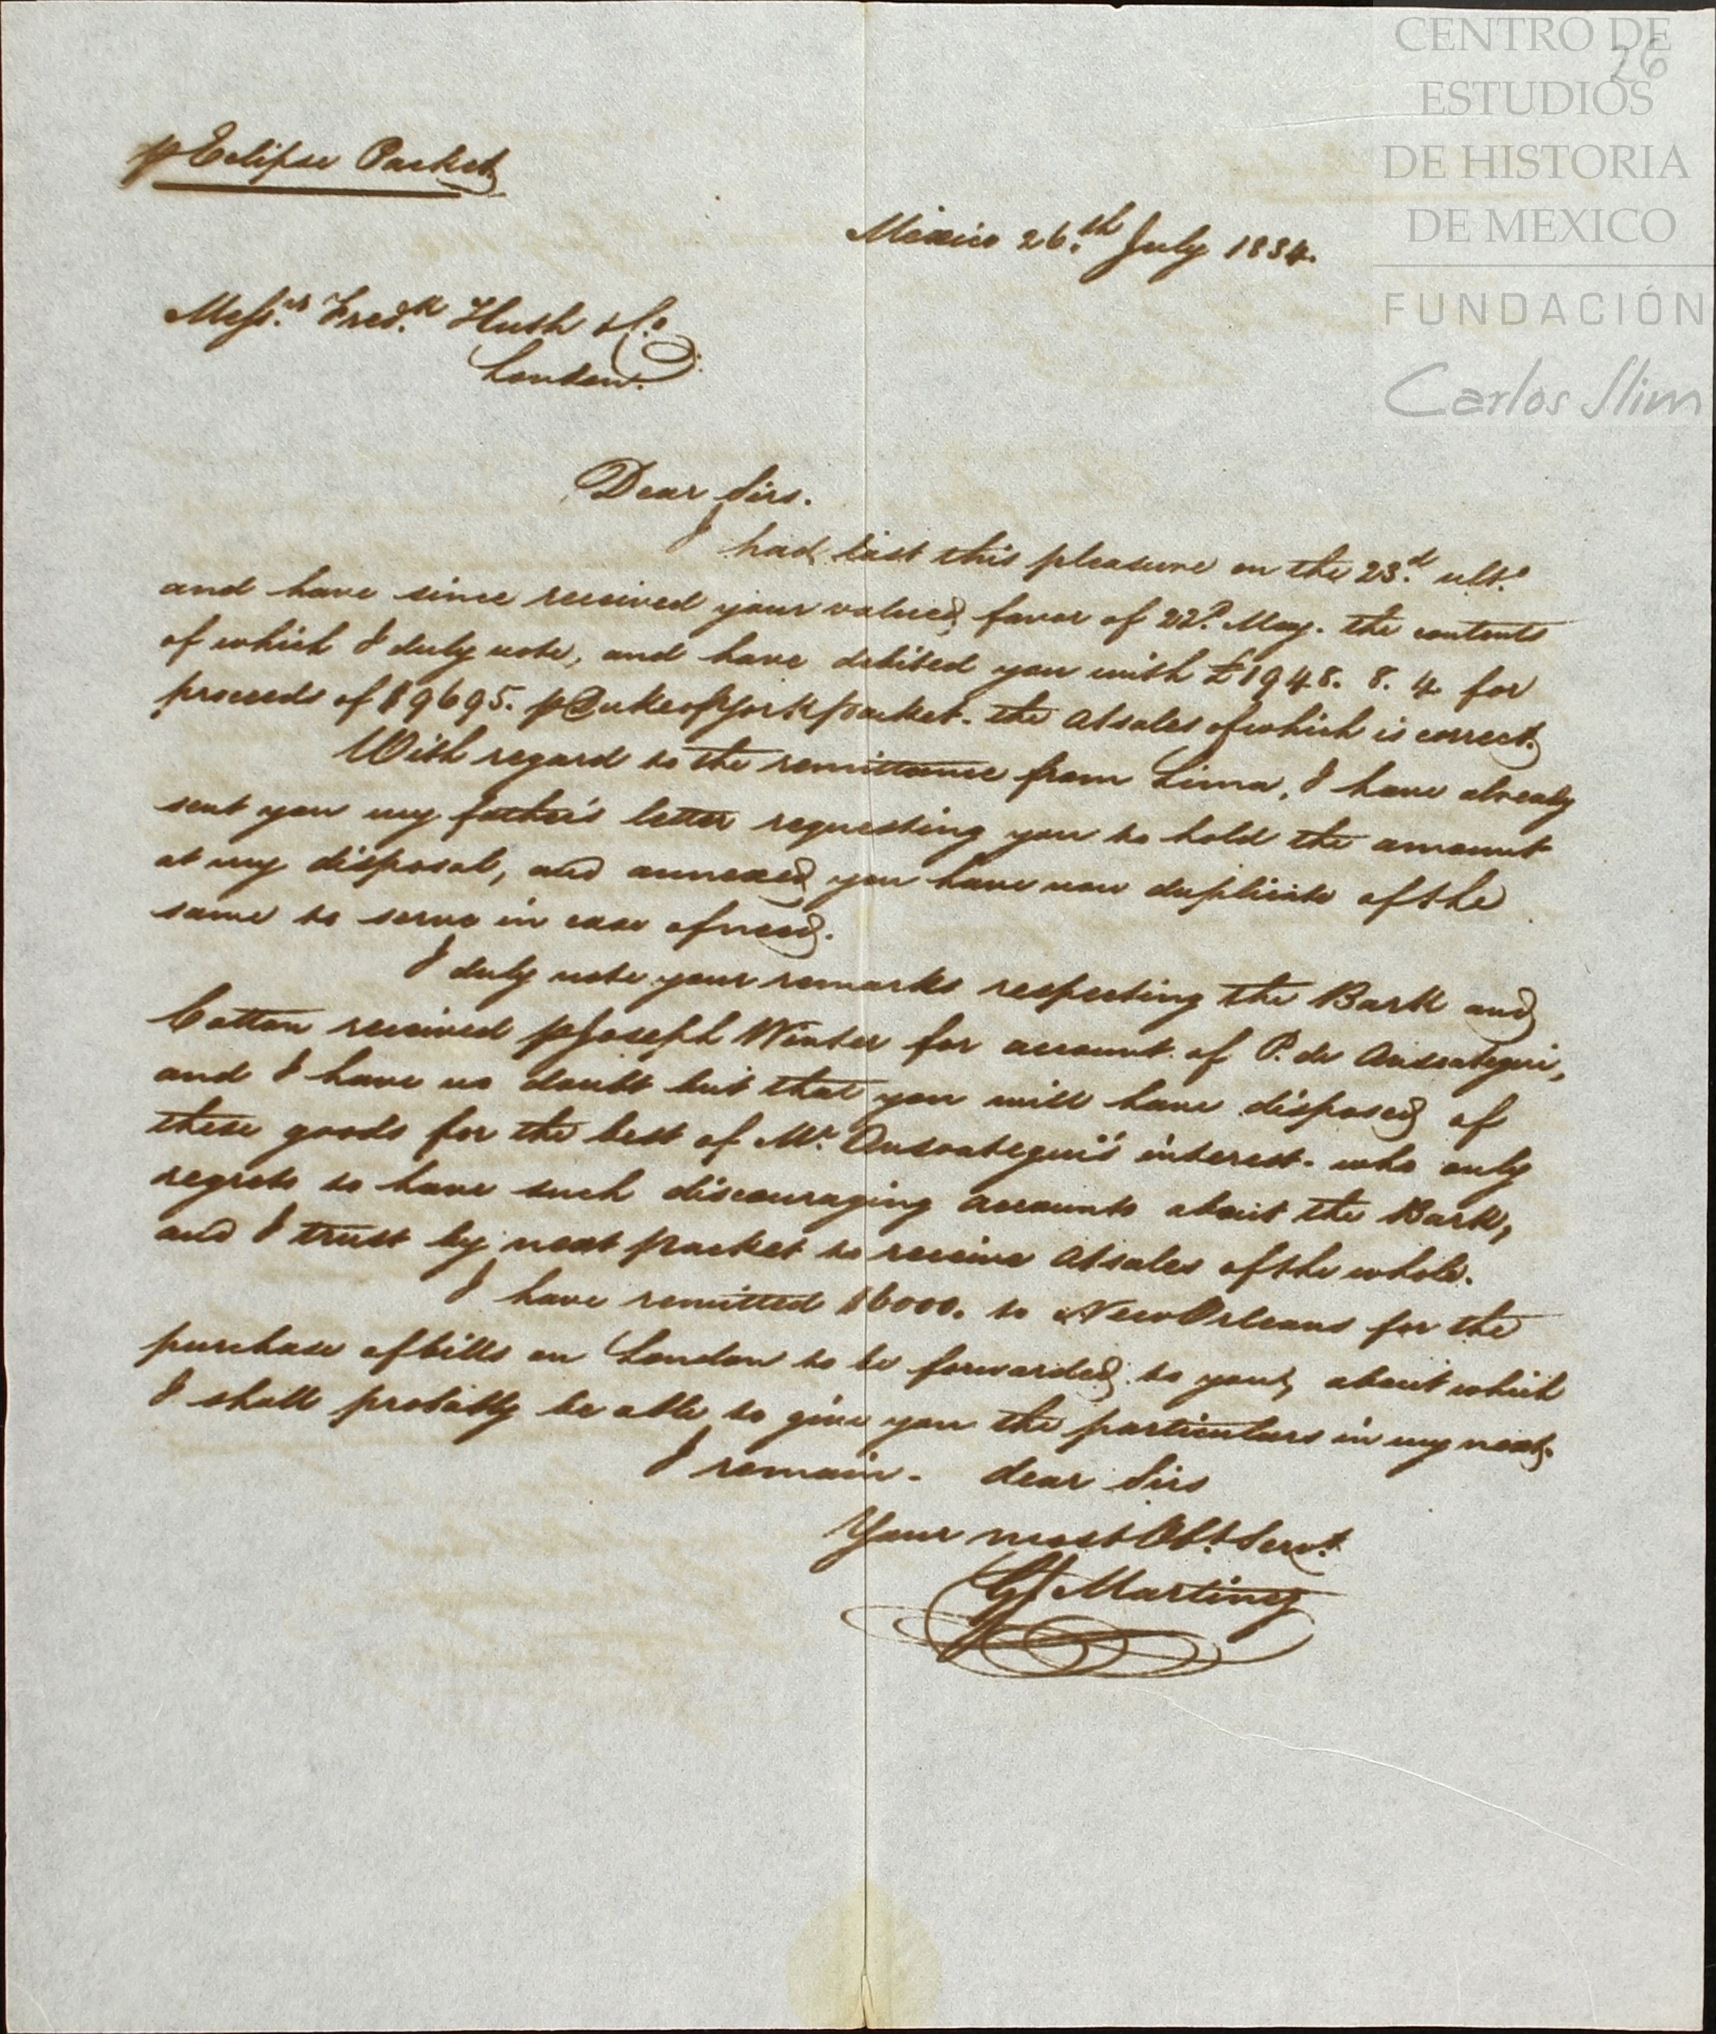 CENTRO DE
ESTUDIOS
DE HISTORIA
DE MEXICO
FUNDACIÓN
Carlos Slim
26
p Eclipse Packet
Mexico 26.th July 1834.
Mess.rs Fred.k Huth & Co
London.
Dear Sirs.
I had last this pleasure on the 23.d ult.o
and have since received your valued favor of 22.d May. the contents
of which I duly note, and have debited you with £1948. 8. 4 for
proceeds of $9695. p Duke of York packet. the A/sales of which is correct.
With regard to the remittance from Lima, I have already
sent you my father's letter requesting you to hold the amount
at my disposal, and annexed you have now duplicate of the
same to serve in case of need.
I duly note your remarks respecting the Bark and
Cotton received p Joseph Winter for account of P. de Ansoategui,
and I have no doubt but that you will have disposed of
these goods for the best of Mr. Ansoategui's interest. who only
regrets to have such discouraging accounts about the Bark,
and I trust by next packet to receive A/sales of the whole.
I have remitted $6000. to New Orleans for the
purchase of bills on London to be forwarded to you, about which
I shall probably be able to give you the particulars in my next.
I remain. dear Sirs
Your most Ob.t Serv.t
Martinez